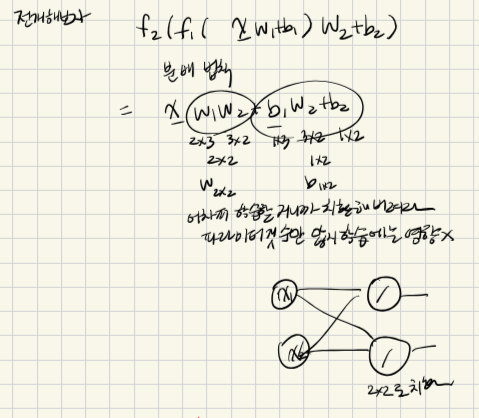 전개해보자
f₂(f₁( x w₁+b₁) w₂+b₂)
분배 법칙
= x w₁w₂+b₁w₂+b₂
2x3 3x2 1x3 3x2 1x2
2x2 1x2
W₂ₓ₂ b₁ₓ₂
어차피 학습할 거니까 치환해버려라
파라미터 갯수만 많지 학습에는 영향x
x₁
x₂
2x2로 치환